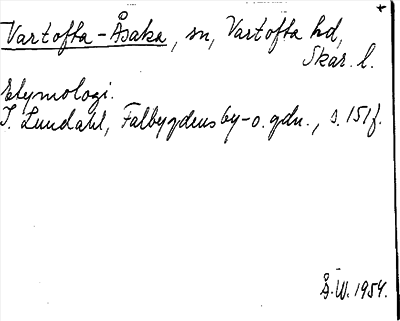 Vartofta-Åsaka, sn, Vartofta hd,
Skar. l.
Etymologi.
I. Lundahl, Falbygdens by- o. gdn., s. 151 f.
Å.W. 1954.